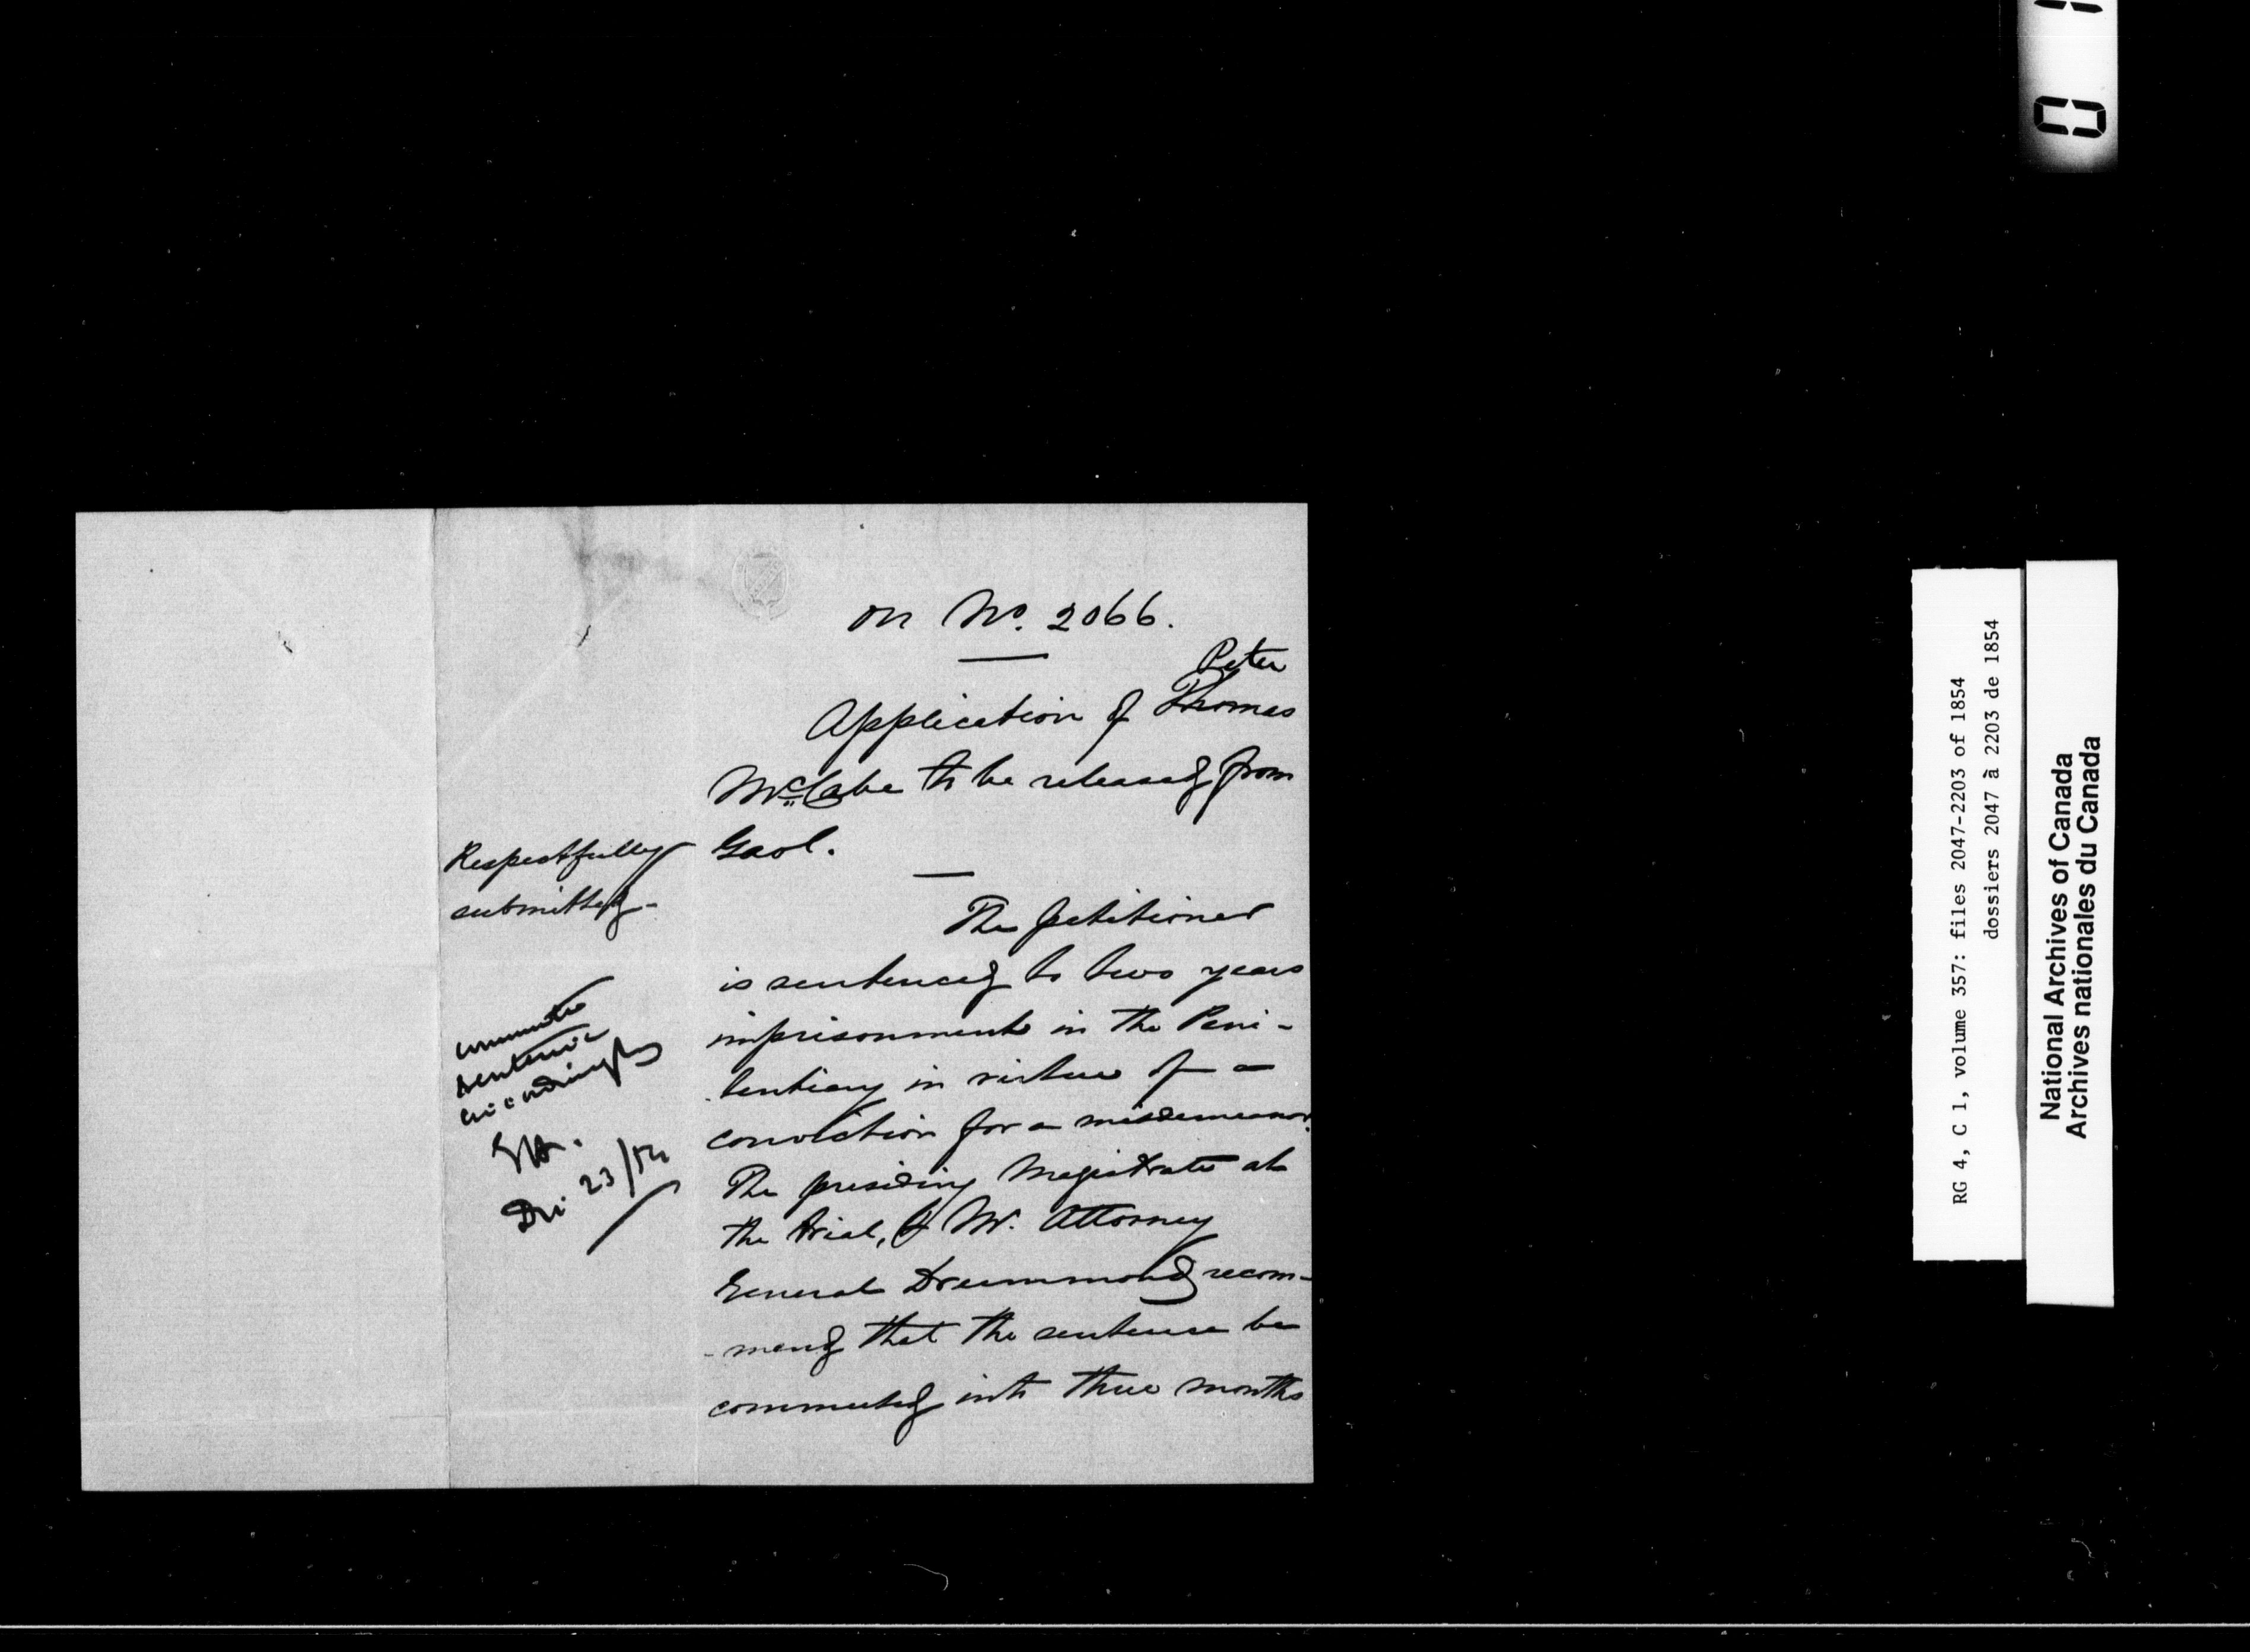 on No. 2066.
Peter
Application of Thomas
McCabe to be released from
Gaol.
The petitioner
is sentenced to two years
imprisonment in the Peni-
tentiary in virtue of a
conviction for a misdemeanor.
The presiding Magistrate at
the trial, & Mr. Attorney
General Drummond recom-
-mend that the sentence be
commuted into three months
Respectfully
submitted-
commute
sentence
accordingly
23/54
RG 4, C 1, volume 357: files 2047-2203 of 1854
dossiers 2047 à 2203 de 1854
National Archives of Canada
Archives nationales du Canada